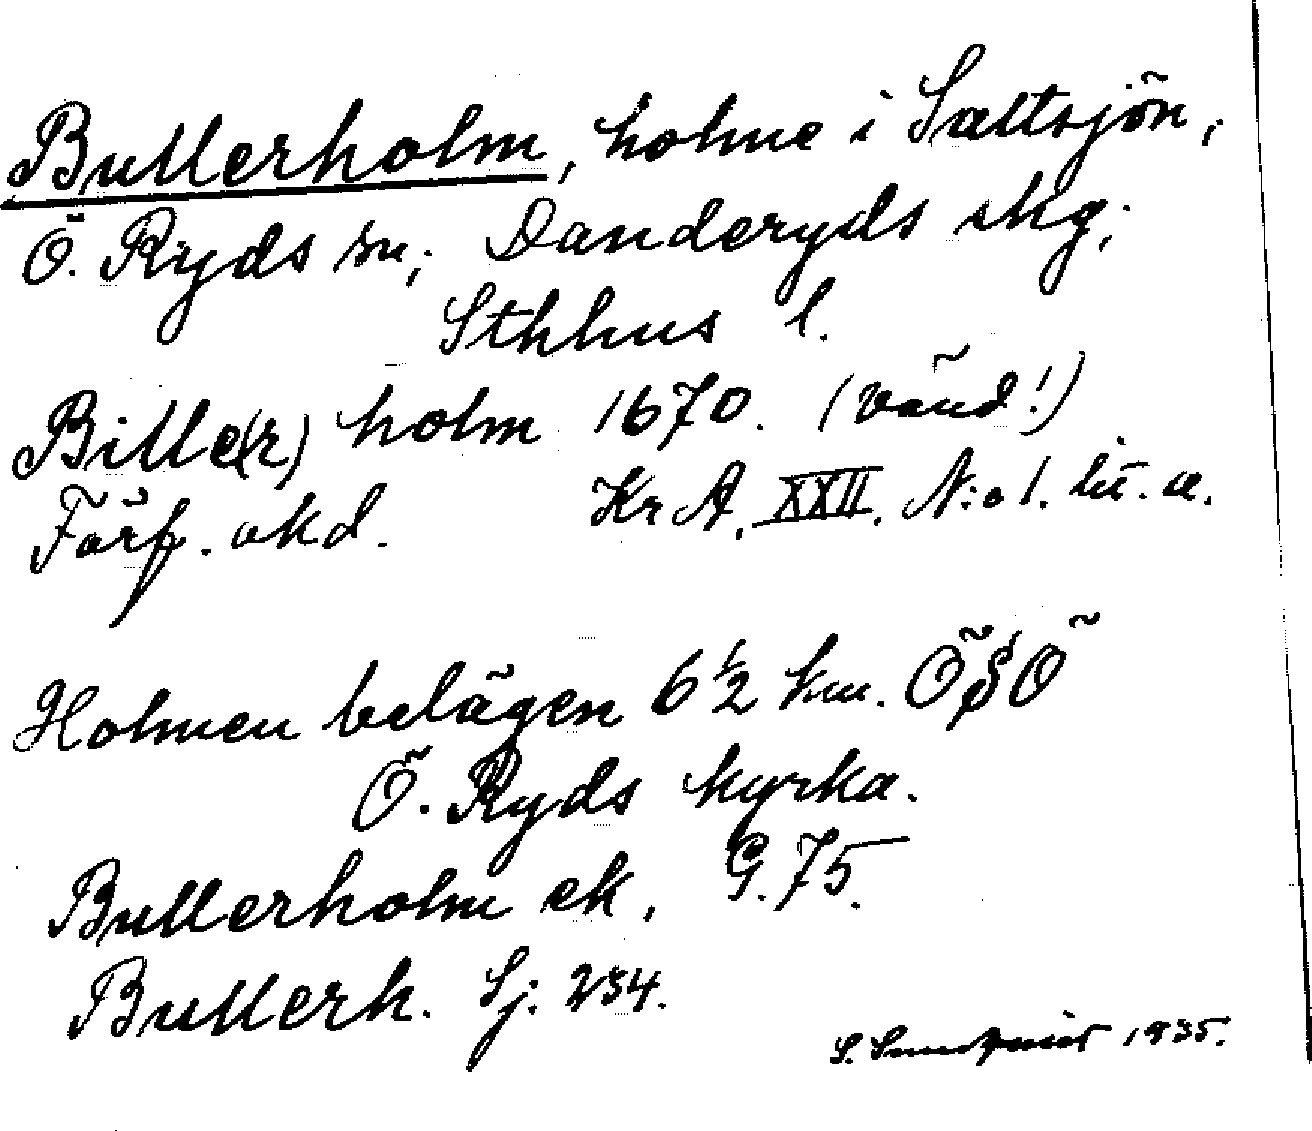 Bullerholm, holme i Saltsjön,
Ö. Ryds sn; Danderyds skg;
Sthlms l.
Bille(r) holm 1670. (vänd!)
Förf. okd. KrA. XXII. N:o 1. lit. a.
Holmen belägen 6 1/2 km. ÖSÖ
Ö. Ryds kyrka.
Bullerholm ek. G. 75.
Bullerh. Sj. 234.
S. Sundqvist 1935.